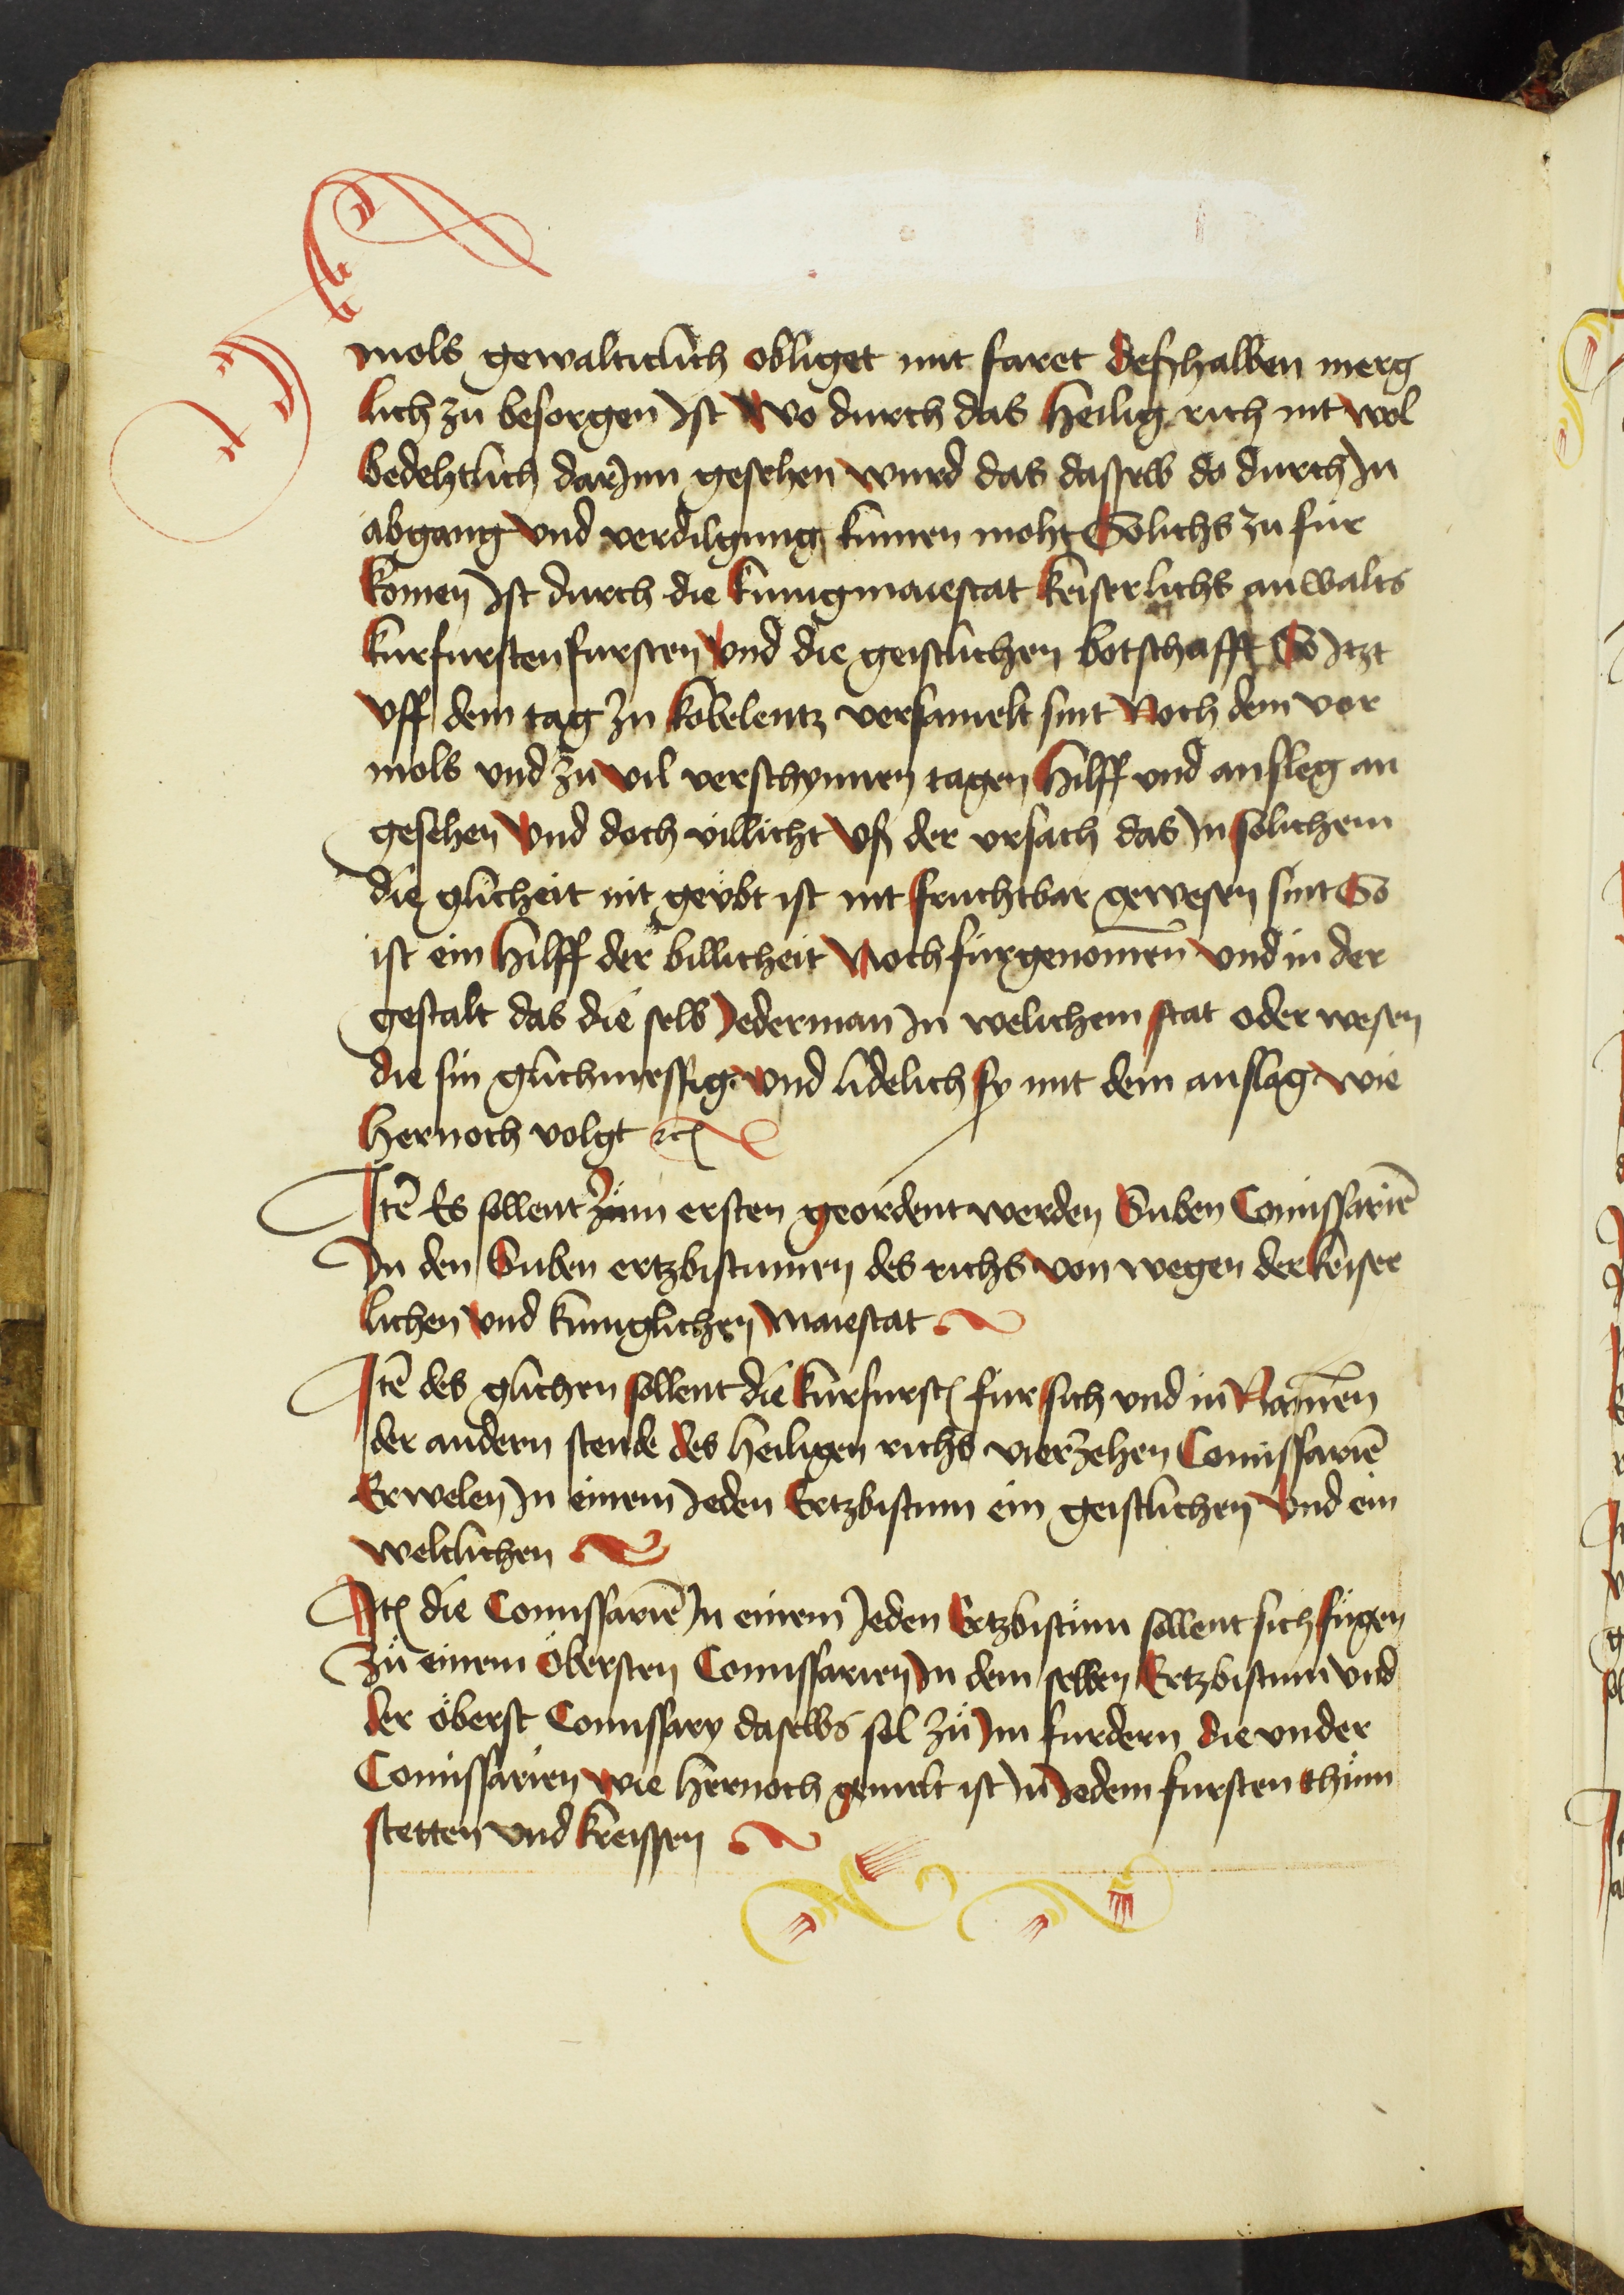 mols gewalticlich obliget mit faret deßhalben merg
lich zu besorgen Ist Wo durch das Heilig rich nit wol
bedehtlich dar Inn gesehen wurd das dasselb do durch In
abgang Vnd verdilgung kumen moht Solichs zu für
komen Ist durch die kunig maiestat keiserlichs anwalts
kurfursten fursten Vnd die geistlichen botschafft So Itzt
Vff dem tag zu kobelentz versamelt sint Noch dem vor
mols vnd zu vil verschynnen tagen hilff vnd ansleg an
gesehen Vnd doch villicht Vß der vrsach das In solichem
die glicheit nit geübt ist nit fruchtbar gewesen sint So
ist ein hilff der billicheit Noch fürgenomen̄ Vnd in der
gestalt das die selb Iederman In welichem stat oder wesen
die sin glichmessig Vnd lidelich sy mit dem anslag wie
hernoch volgt ꝛcꝭ
Itē Es sollent zum ersten geordent werden Suben Comissariē
In den Suben ertzbistumen des richs von wegen der keiser
lichen Vnd kuniglichen Maiestat
Itē des glichen sollent die kurfurstꝭ fur sich vnd in Namen̄
der andern stende des heiligen richs vierzehen Comissariē
Erwelen In einem Ieden Ertzbistum ein geistlichen Vnd ein
weltlichen
Itꝭ die Comissariē In einem Ieden Ertzbistüm sollent sich fügen
Zü einem öbersten Comissarien In dem selben Ertzbistum vnd
der öberst Comissary daselbs sol zü Im furdern die vnder
Comissarien wie hernoch gemelt ist In Iedem fursten thüm
stetten vnd kreissen